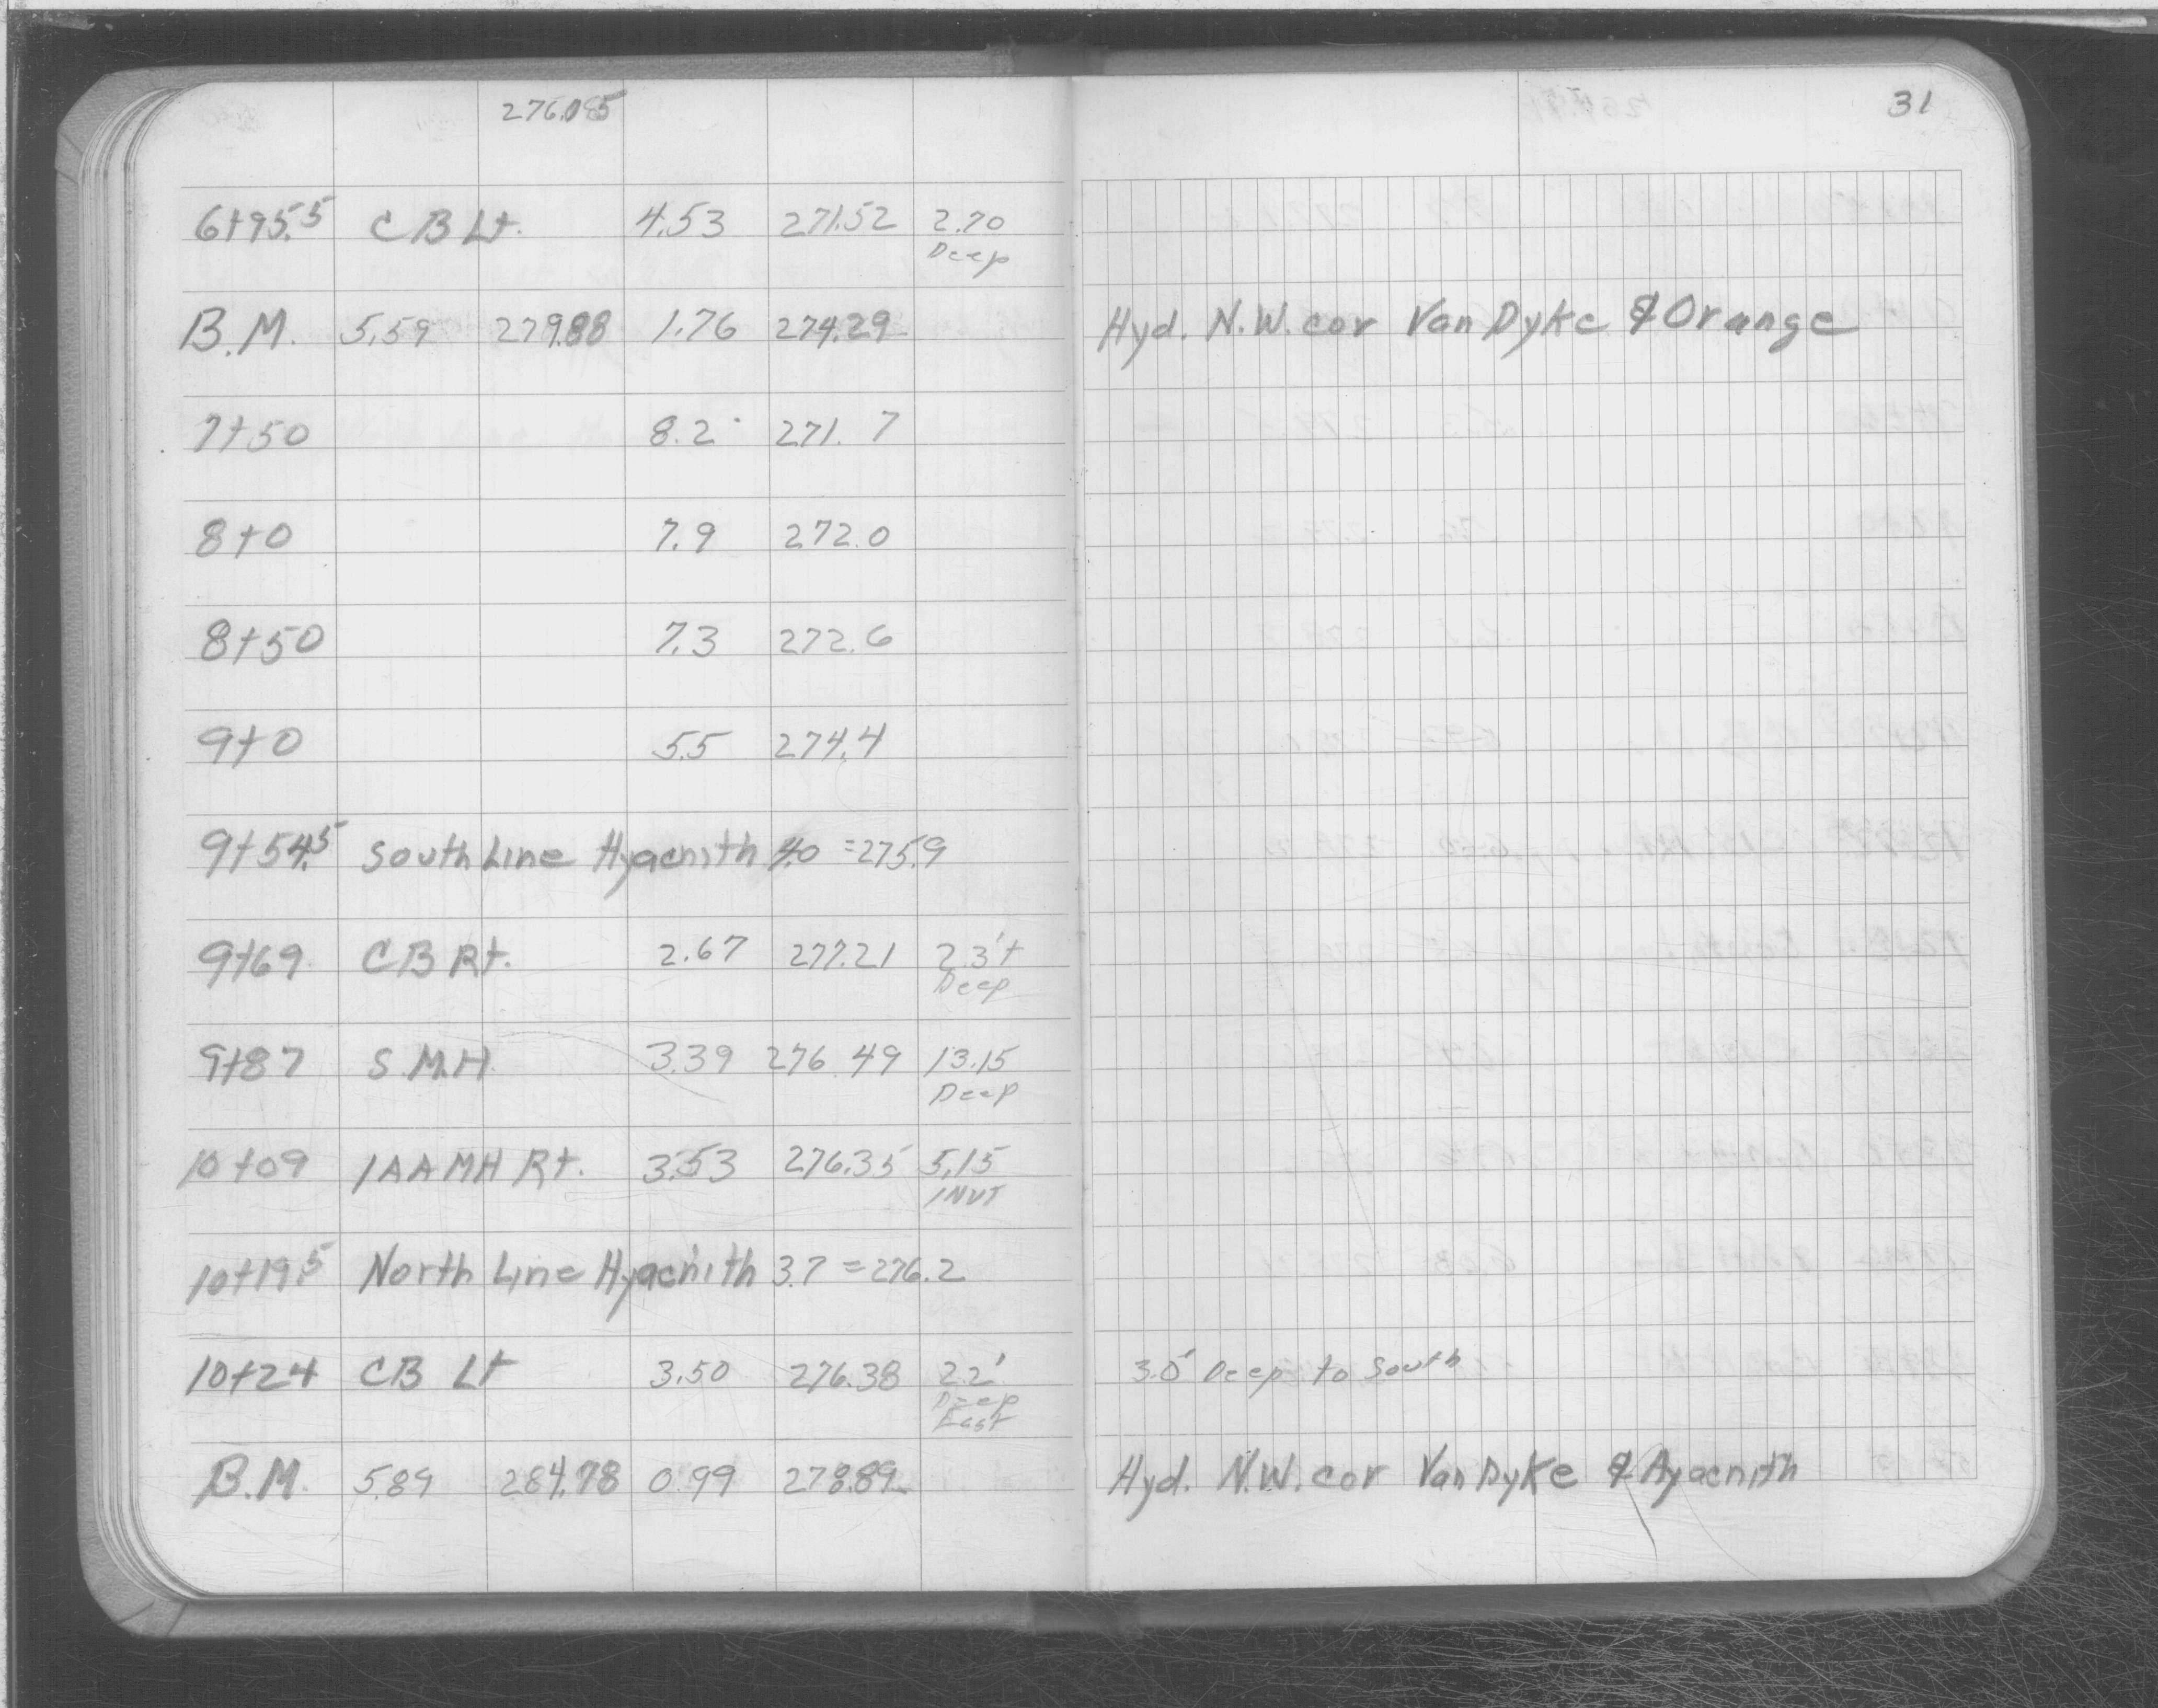 31
276.05
6+95.5 CB Lt. 4.53 271.52 2.70
Deep
B.M. 5.59 279.88 1.76 274.29 Hyd. N.W. cor Van Dyke & Orange
7+50 8.2 271.7
8+0 7.9 272.0
8+50 7.3 272.6
9+0 5.5 274.4
9+54.5 South Line Hyacnith 4.0 = 275.9
9+69 CB Rt. 2.67 277.21 2.3'+
Deep
9+87 S.M.H. 3.39 276.49 13.15
Deep
10+09 IAAMH Rt. 3.53 276.35 5.15
INVT
10+19.5 North Line Hyacnith 3.7 = 276.2
10+24 CB Lt 3.50 276.38 2.2' 3.0' Deep to South
Deep
East
B.M. 5.89 284.78 0.99 278.89 Hyd. N.W. cor Van Dyke & Ayacnith